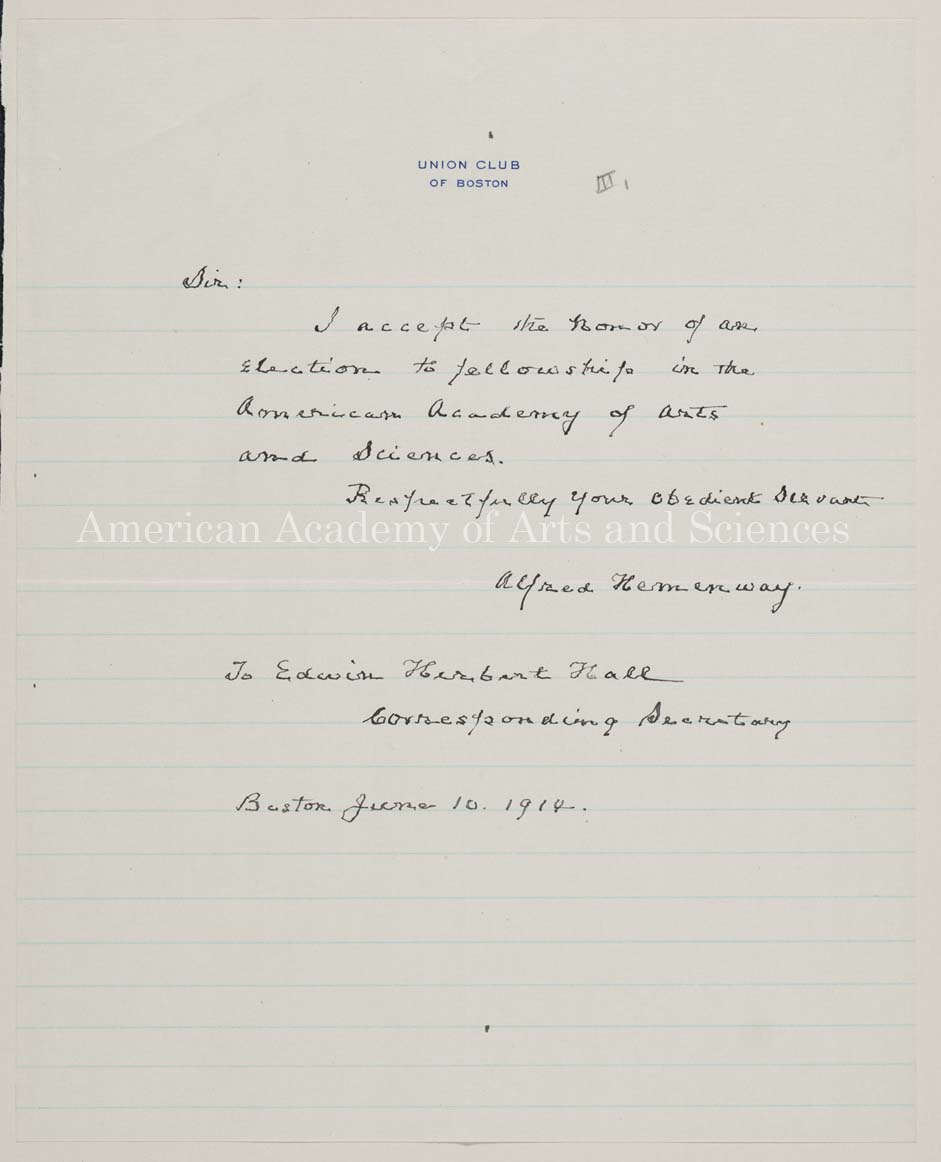 UNION CLUB
OF BOSTON
III,
Sir:
I accept the honor of an
Election to fellowship in the
American Academy of Arts
and Sciences.
Respectfully your Obedient Servant
American Academy of Arts and Sciences
Alfred Hemenway.
To Edwin Herbert Hall
Corresponding Secretary
Boston June 10. 1914.